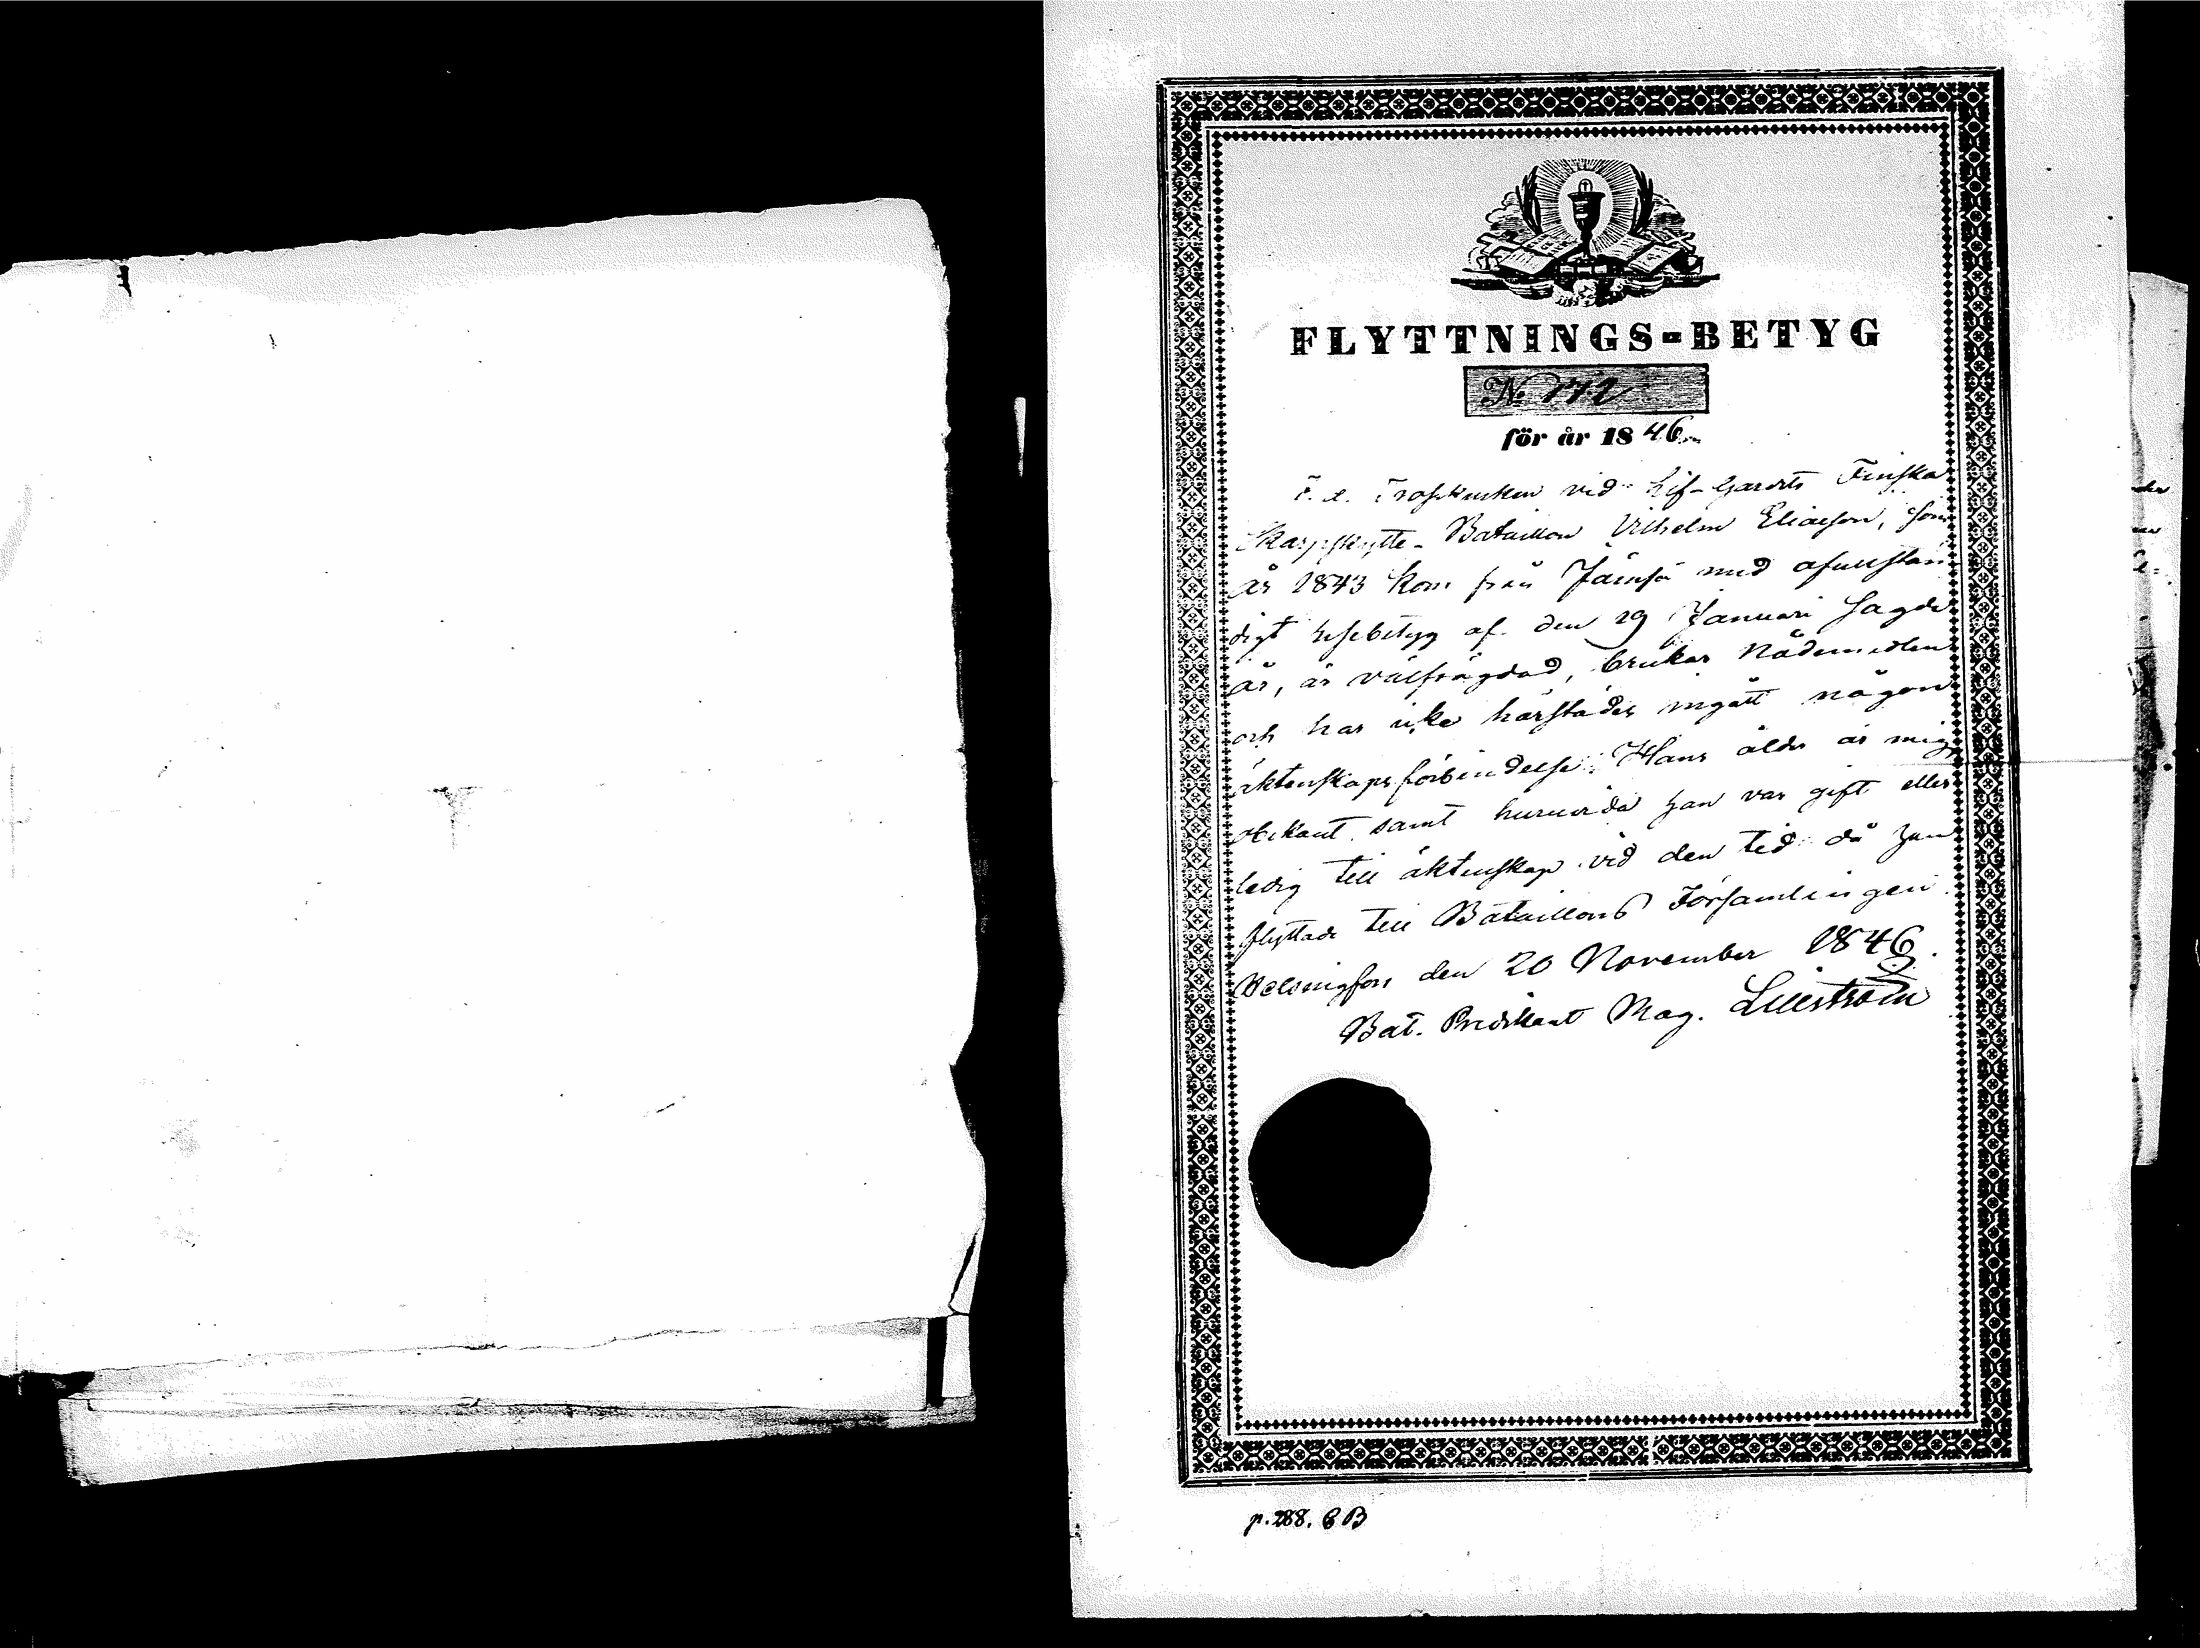 FLYTTNINGS-BETYG
No 172
för år 1846
F. d. Trosskusken vid Lif-Gardets Finska
Skarpskytte-Bataillon Vilhelm Eliasson, som
år 1843 kom från Jämsä med ofullstän
digt resebetyg af den 29 Januari sagde
år, är välfrägdad, brukar Nådemedlen
och har icke härstädes ingått någon
äktenskapsförbindelse. Hans ålder är mig
obekant samt huruvida han var gift eller
ledig till äktenskap vid den tid då han
flyttade till Bataillons Församlingen.
Helsingfors den 20 November 1846.
Bat. Predikant Mag. Lillström
p. 288. B